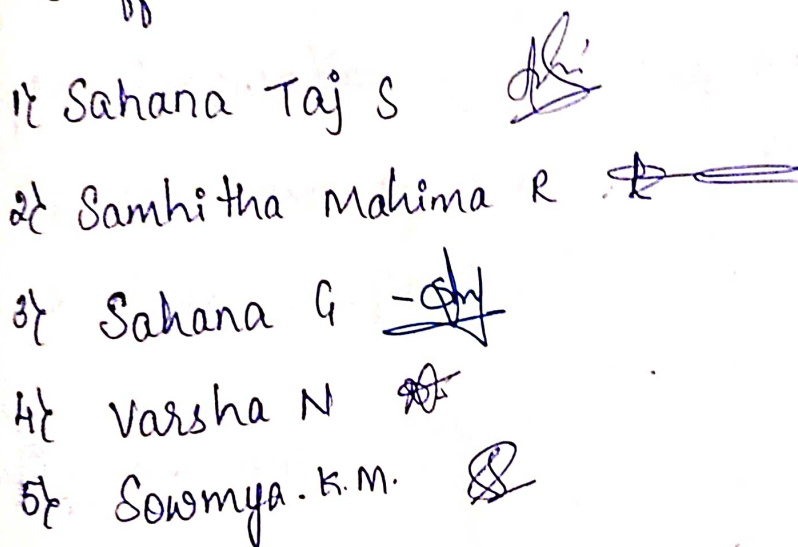 1) Sahana Taj S
2) Samhitha Mahima R
3) Sahana G
4) Varsha N
5) Sowmya. K. M.